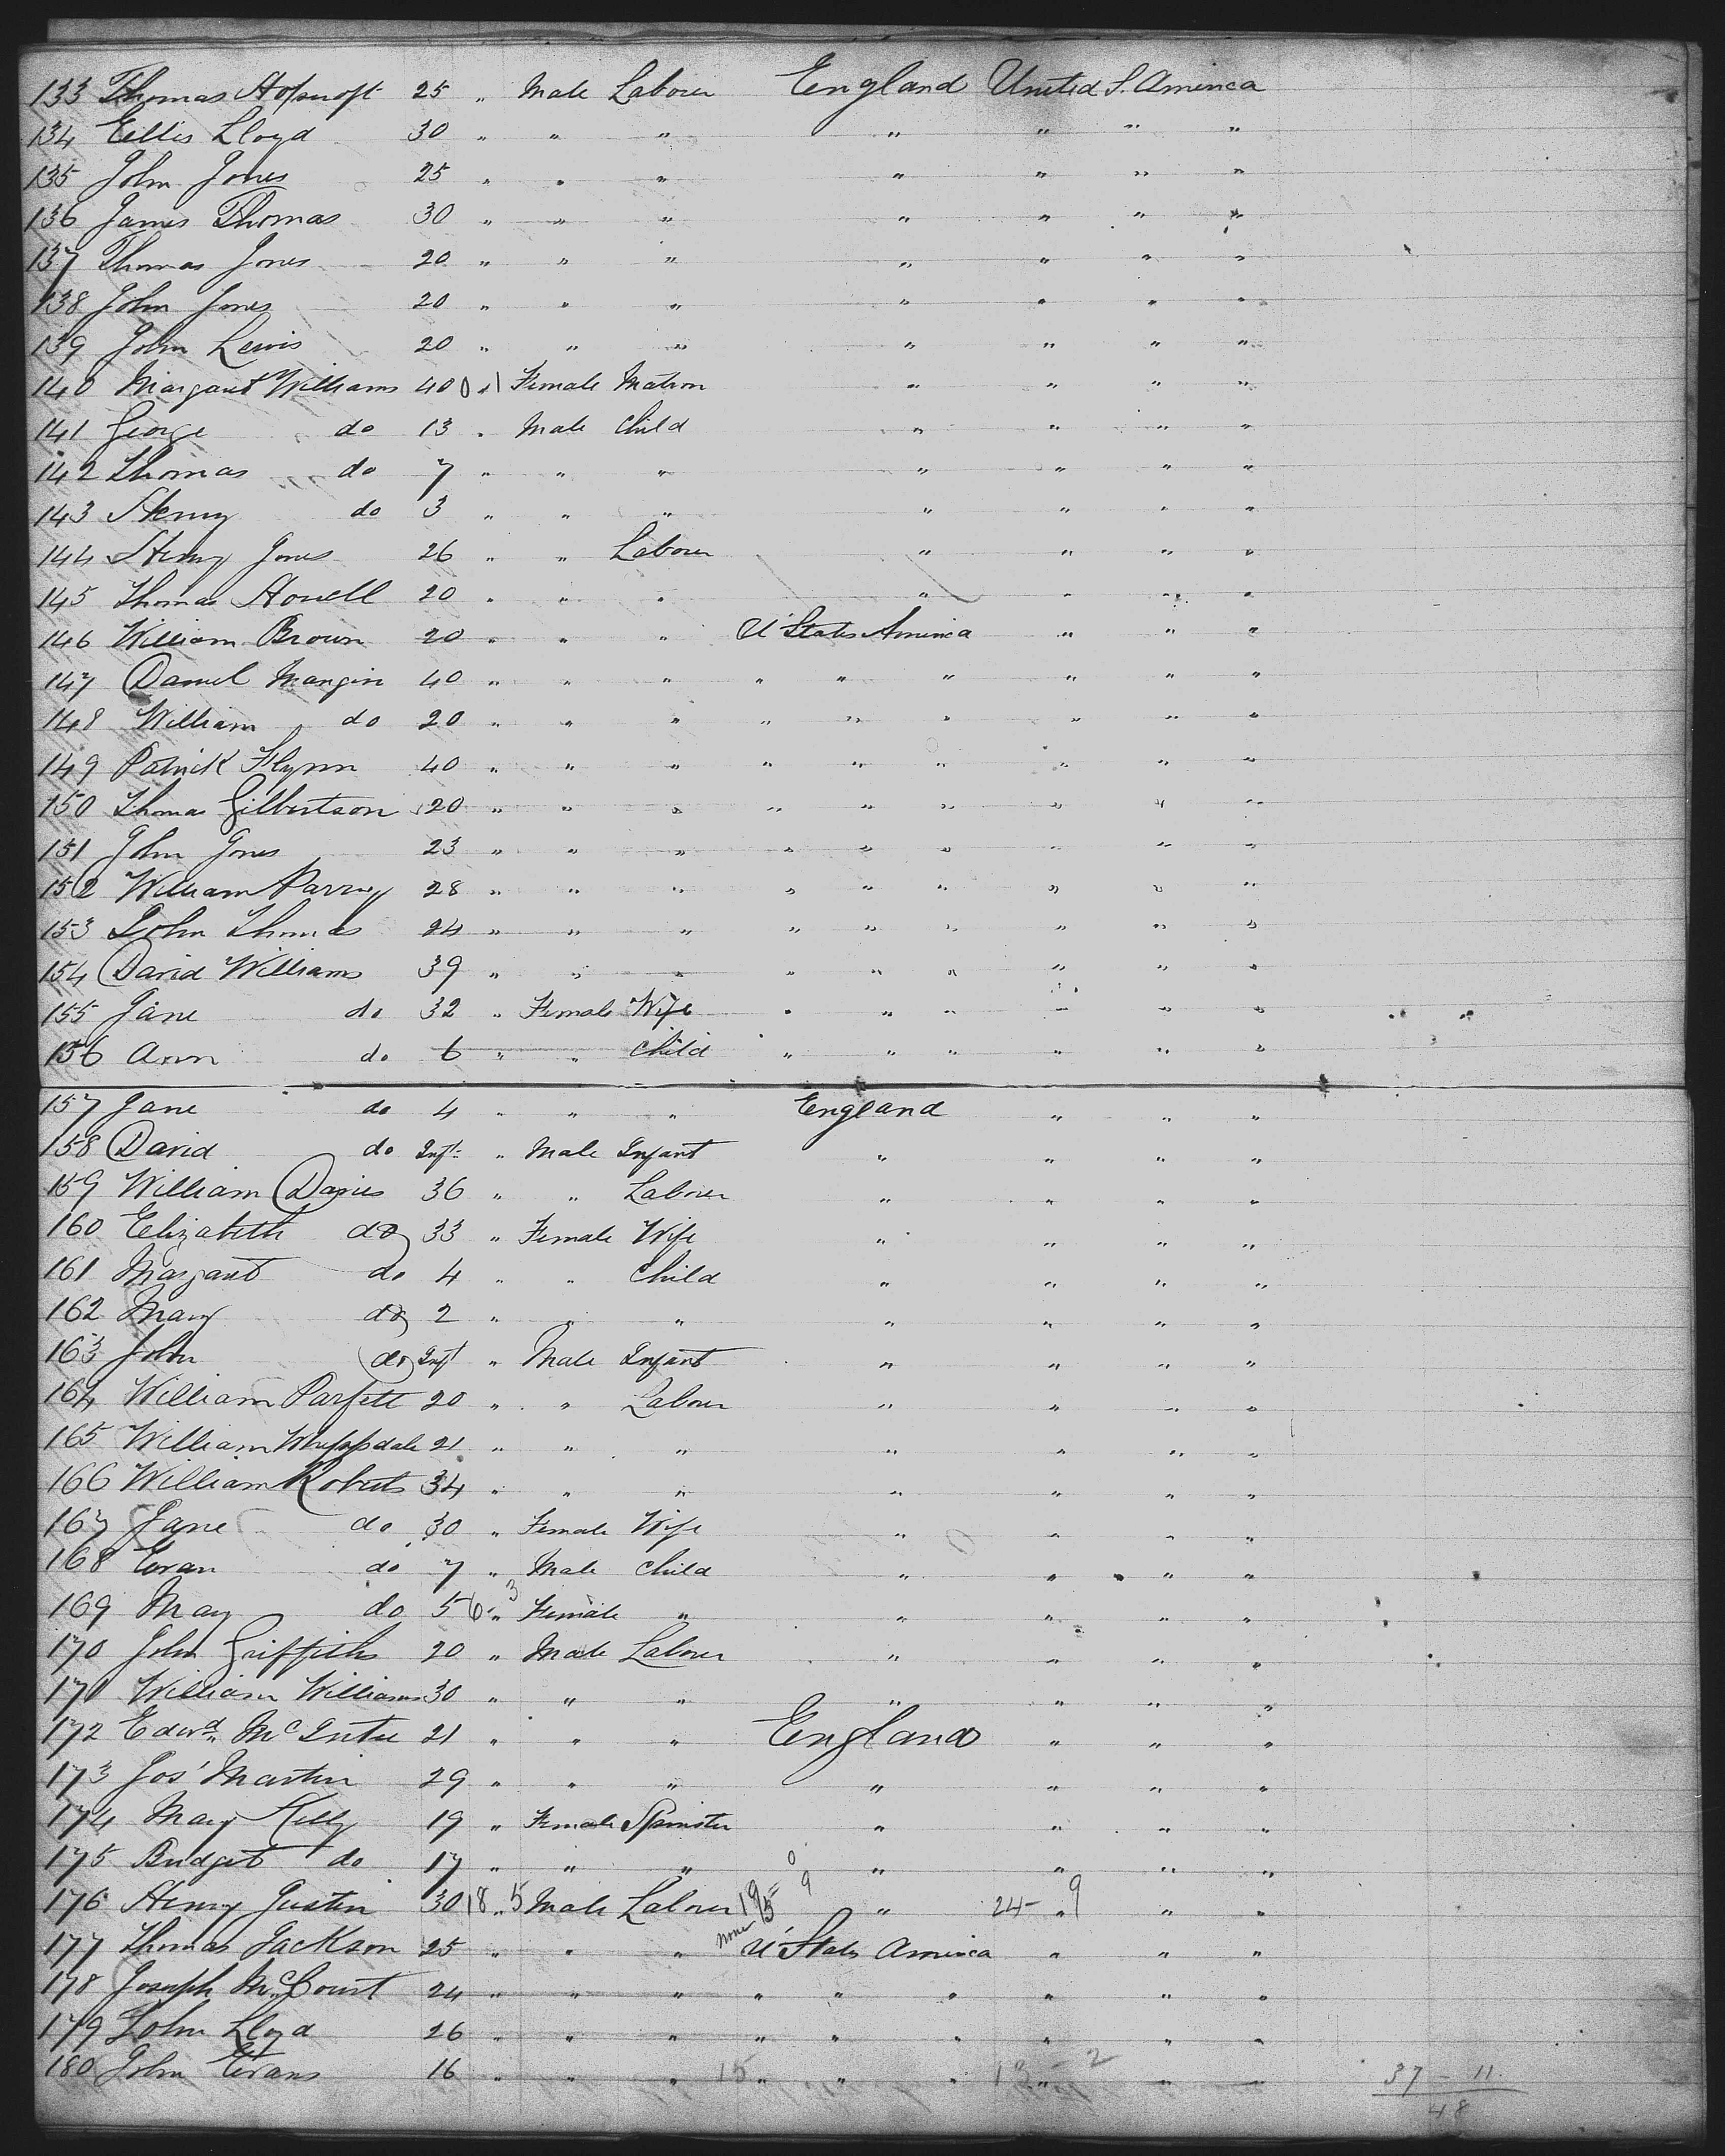 133 Thomas Hopcroft 25 " Male Laborer England United S. America
134 Ellis Lloyd 30 " " " " " " "
135 John Jones 25 " " " " " " "
136 James Thomas 30 " " " " " " "
137 Thomas Jones 20 " " " " " " "
138 John Jones 20 " " " " " " "
139 John Lewis 20 " " " " " " "
140 Margaret Williams 40 " Female Matron " " " "
141 George do 13 " Male Child " " " "
142 Thomas do 7 " " " " " " "
143 Henry do 3 " " " " " " "
144 Henry Jones 26 " " Laborer " " " "
145 Thomas Howell 20 " " " " " " "
146 William Brown 20 " " " U States America " " "
147 Daniel Mangin 40 " " " " " " " " "
148 William do 20 " " " " " " " " "
149 Patrick Flynn 40 " " " " " " " " "
150 Thomas Gilbertson 20 " " " " " " " " "
151 John Jones 23 " " " " " " " " "
152 William Parry 28 " " " " " " " " "
153 John Thomas 24 " " " " " " " " "
154 David Williams 39 " " " " " " " " "
155 Jane do 32 " Female Wife " " " " " "
156 Ann do 6 " " Child " " " " " "
157 Jane do 4 " " " England " " "
158 David do Inft " Male Infant " " " "
159 William Davies 36 " " Laborer " " " "
160 Elizabeth do 33 " Female Wife " " " "
161 Margaret do 4 " " Child " " " "
162 Mary do 2 " " " " " " "
163 John do Inft " Male Infant " " " "
164 William Parfett 20 " " Laborer " " " "
165 William Whippdale 21 " " " " " " "
166 William Roberts 34 " " " " " " "
167 Jane do 30 " Female Wife " " " "
168 Evan do 7 " Male Child " " " "
169 Mary do 5 6 " 3 Female " " " " "
170 John Griffiths 20 " Male Laborer " " " "
171 William Williams 30 " " " " " " "
172 Edwd. McIntee 21 " " " England " " "
173 Jos' Martin 29 " " " " " " "
174 Mary Kelly 19 " Female Spinster " " " "
175 Bridget do 17 " " " " " " "
176 Henry Justin 30 18 " 5 Male Laborer 19 " 24 - " 9 " "
177 Thomas Jackson 25 " " " none U' States America " " "
178 Joseph McCourt 24 " " " " " " " " "
179 John Lloyd 26 " " " " " " " " "
180 John Evans 16 " " " 15 " " " 13 - 2 " " 37 - 11
48